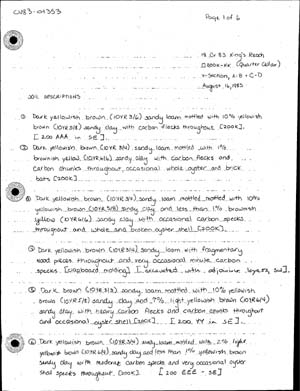 CV83-01353
Page 1 of 6
18 Cv 83 King's Reach
(Quarter Cellar)
X-Section, A-B + C-D
August 16, 1985
SOIL DESCRIPTIONS
① Dark yellowish brown (10YR 3/6) sandy loam mottled with 10% yellowish
brown (10YR 5/8) sandy clay with carbon flecks throughout [200K].
[200 AAA in SE].
② Dark yellowish brown (10YR 3/4) sandy loam mottled with 1%
brownish yellow (10YR 6/6) sandy clay with carbon flecks and
carbon chunks throughout, occasional whole oyster and brick
bats [200K].
Dark yellowish brown (10YR 3/4) sandy loam mottled with 10%
yellowish brown (10YR 5/8) sandy clay and less than 1% brownish
yellow (10YR 6/6) sandy clay with occasional carbon specks
throughout and whole and broken oyster shell [200K].
Dark yellowish brown (10YR 3/4) sandy loam with fragmentary
wood pieces throughout and very occasional minute carbon
specks [clapboard molding] [excavated with adjoining layers, SE].
Dark brown (10YR 3/3) sandy loam mottled with 10% yellowish
brown (10YR 5/8) sandy clay and 7% light yellowish brown (10YR 6/4)
sandy clay with many carbon flecks and carbon chunks throughout
and occasional oyster shell [200K]. [200 YY in SE].
⑥ Dark yellowish brown (10YR 3/4) sandy loam mottled with 2% light
yellowish brown (10YR 6/4) sandy clay and less than 1% yellowish brown
sandy clay with moderate carbon specks and very occasional oyster
shell specks throughout [200K]. [200 EEE - SE]